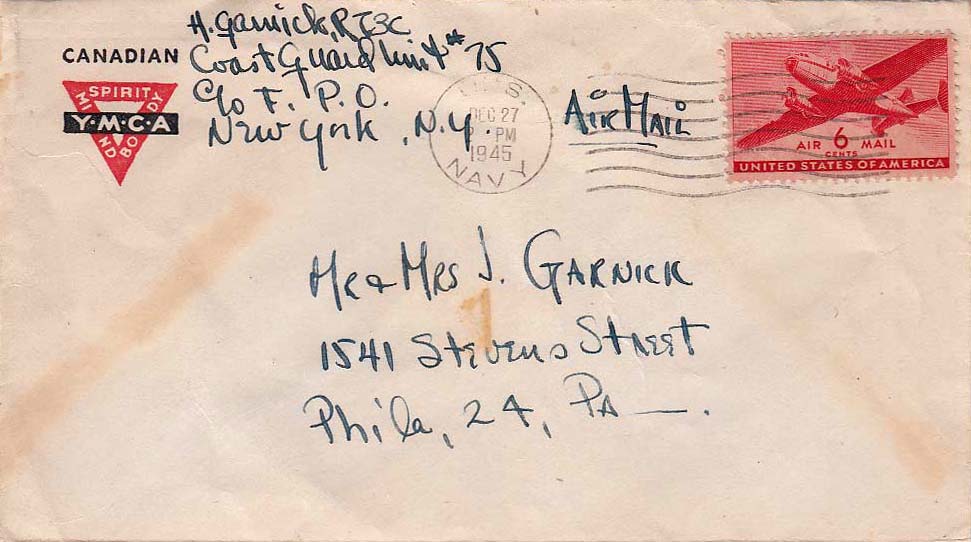 H. Garnick, RT3C
Coast Guard Unit # 75
C/o F. P. O.
New York, N.Y.
CANADIAN
SPIRIT
MIND
BODY
Y·M·C·A
U.S.
DEC 27
PM
1945
NAVY
AIR MAIL
AIR 6 MAIL
CENTS
UNITED STATES OF AMERICA
MR & MRS J. GARNICK
1541 Stevens Street
Phila, 24, PA.